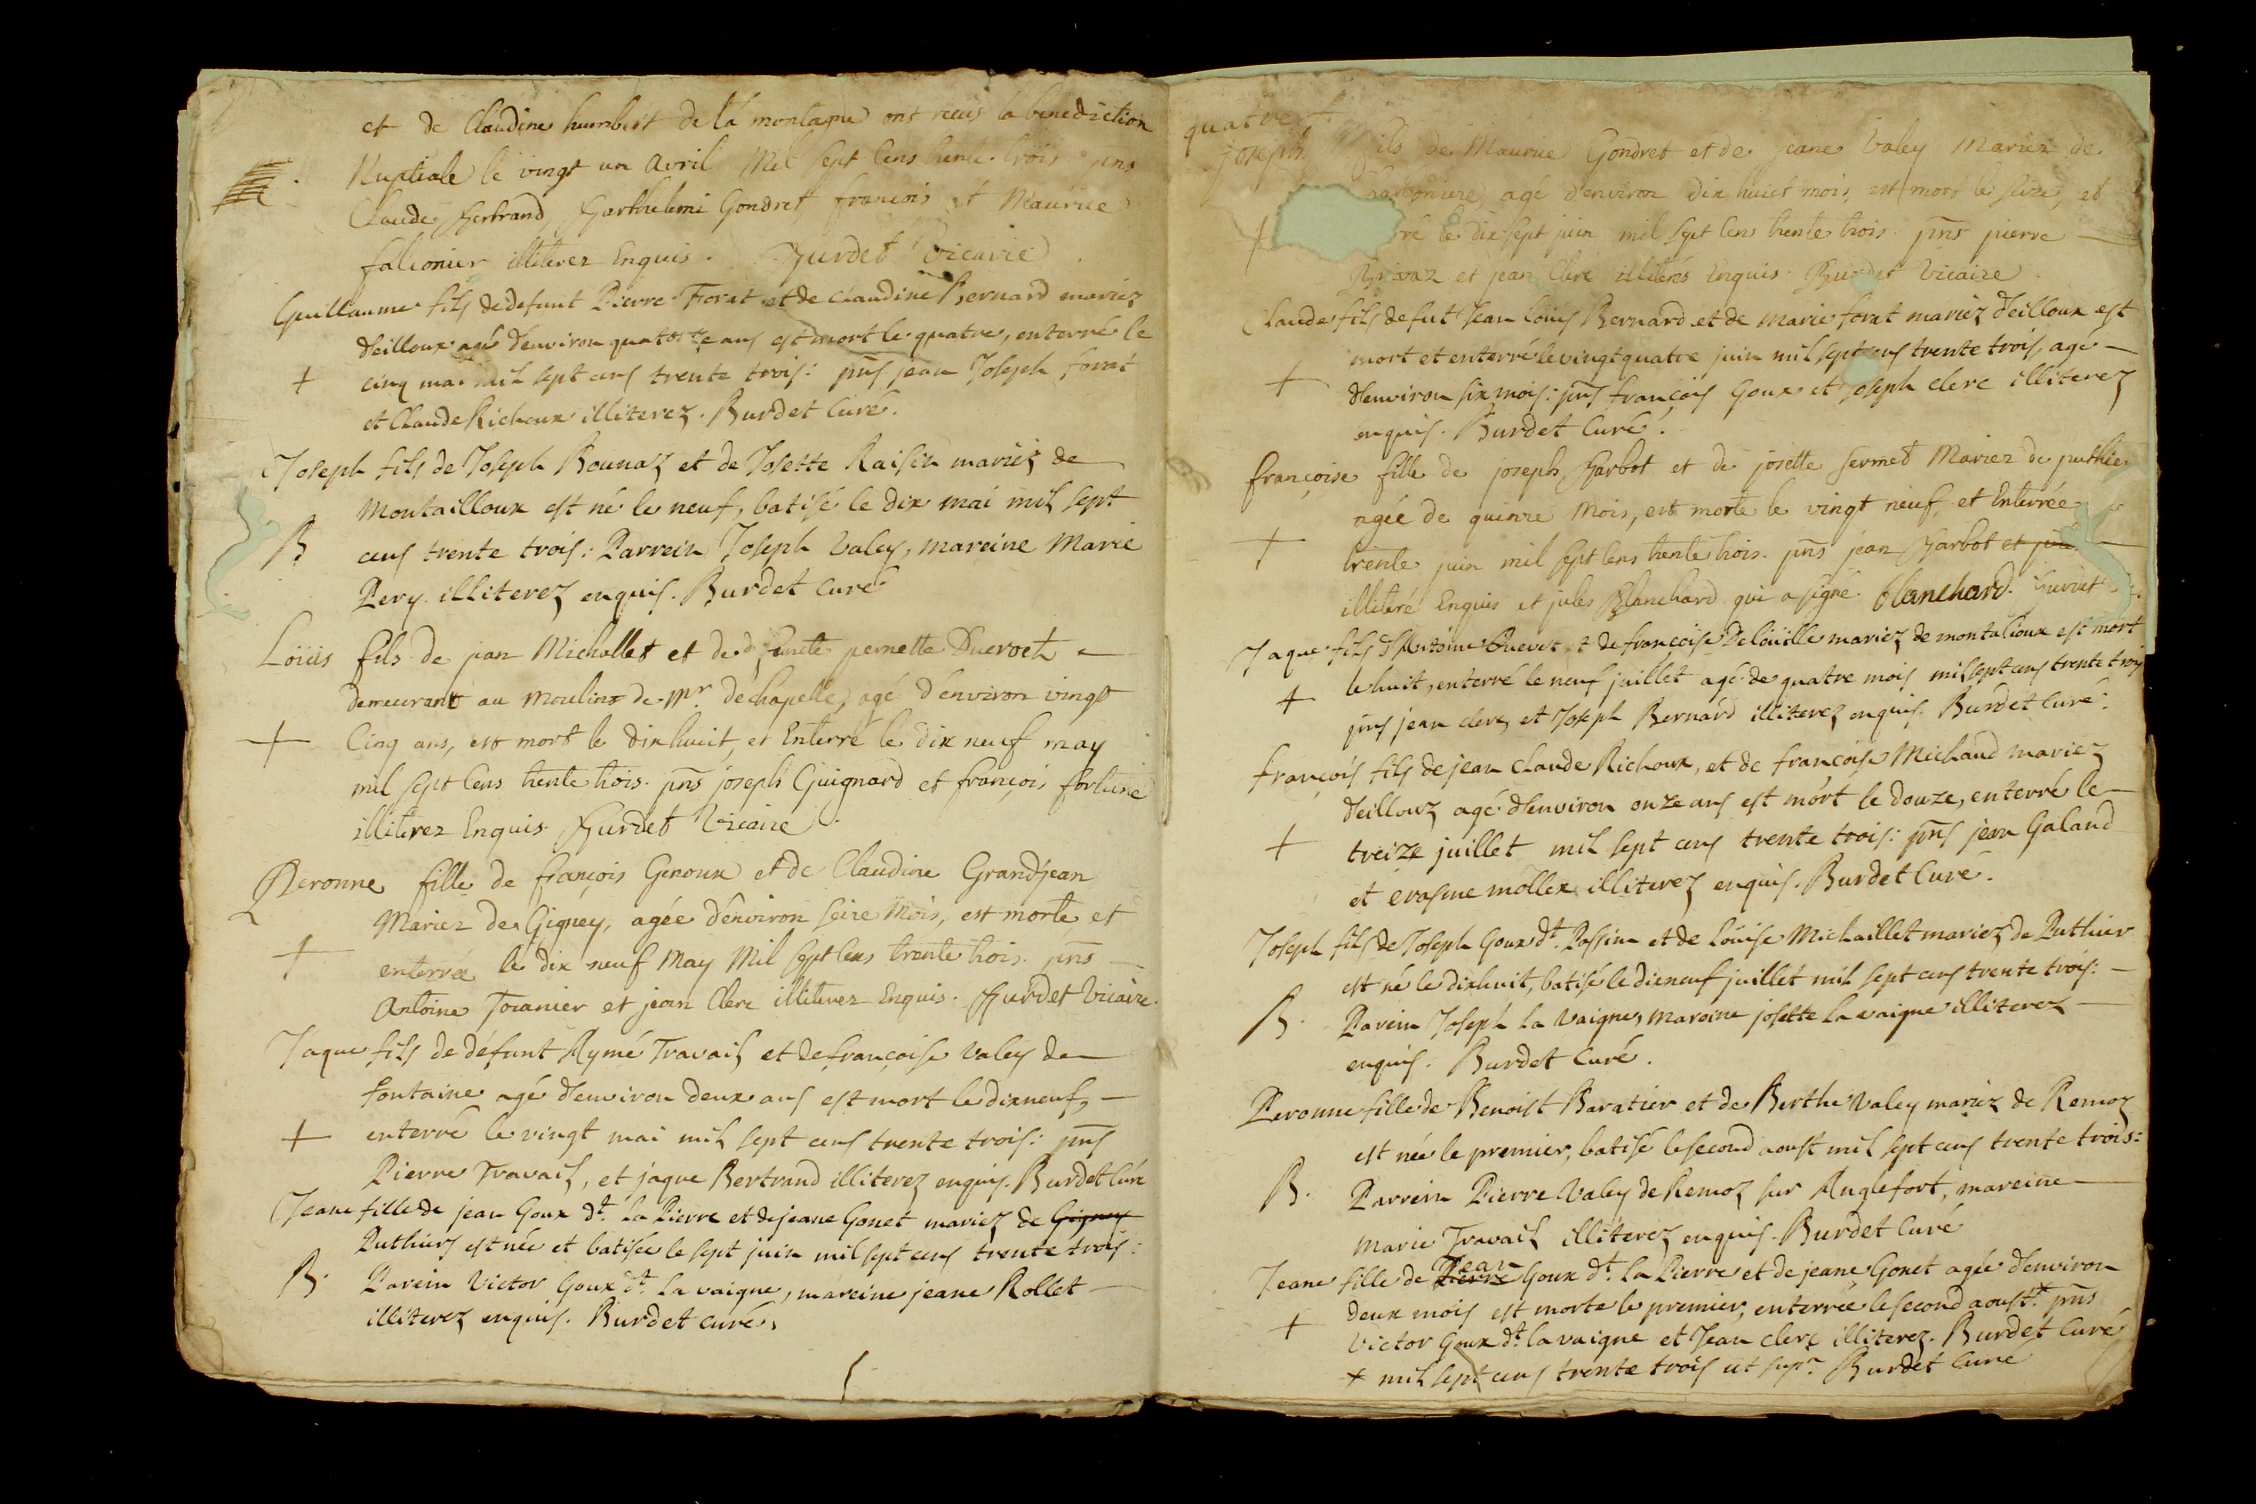 et de Claudine humbert de la montagne ont recus la benediction
Nuptiale le vingt un Avril Mil sept Cens trente trois pns
Claude Bertrand, Barthelemi Gondret françois et Maurice
falconier illiterez Enquis. Burdet Vicaire
Guillaume fils de defunt Pierre Forat et de Claudine Bernard mariez
d'eilloux agé d'environ quatorze ans est mort le quatre, enterré le
+ cinq mai mil sept cens trente trois: pns jean Joseph forat
et Claude Richoux illiterez. Burdet Curé.
Joseph fils de Joseph Bounaz et de Josette Raisin mariez de
Montailloux est né le neuf, batisé le dix mai mil sept
B cens trente trois: Parrein Joseph Valey, mareine Marie
Pery illiterez enquis. Burdet Curé
Loüis fils de jean Michallet et de defuncte pernette Ducroct
demeurant au moulins de Mr. dechapelle, agé d'environ vingt
+ Cinq ans, est mort le dixhuit, et Enterré le dix neuf may
mil sept Cens trente trois. pns joseph Guignard et françois fortuné
illiterez Enquis Burdet Vicaire.
Peronne fille de françois Genoux et de Claudine Grandjean
Mariez de Gigney, agée d'environ seize Mois, est morte et
+ enterrée le dix neuf May Mil sept Cens trente trois. pns
Antoine Toranier et jean Clerc illiterez Enquis. Burdet Vicaire.
Jaque fils de défunt Aymé Travail et de françoise Valey de
fontaine agé d'environ deux ans est mort le dixneuf,
+ enterré le vingt mai mil sept cens trente trois: pns
Pierre Travail, et jaque Bertrand illiterez enquis. Burdet Curé
Jeane fille de jean Goux dt. la Pierre et de jeane Gonet mariez de Gigney
Puthiers est née et batisée le sept juin mil sept cens trente trois:
B. Parein Victor Goux dt. la vaigne, mareine jeane Rollet
illiterez enquis. Burdet curé.
quatre
joseph fils de Maurice Gondret et de jeane Valey Mariez de
agé d'environ dix huict mois, est mort le seize, et
+ le dix sept juin mil sept Cens trente trois. pns pierre
et jean Clerc illiterés Enquis. Burdet Vicaire.
Claude fils de fut Jean Loüis Bernard et de Marie forat mariez d'eilloux est
mort et enterré le vingt quatre juin mil sept cens trente trois, agé
+ d'environ six mois: pns françois Goux et Joseph clerc illiterez
enquis. Burdet Curé.
françoise fille de joseph Barbot et de josette sermet Mariez de puthier
agée de quinze Mois, est morte le vingt neuf, et Enterrée
+ trente juin mil sept Cens trente trois. pns jean Barbot et jean
illiteré Enquis et jules Blanchard qui a signé. blanchard. Burdet
Jaque fils d'Antoine et de françoise Deloüille mariez de montalioux est mort
+ le huit, enterré le neuf juillet agé de quatre mois mil sept cens trente trois
pns jean clerc, et Joseph Bernard illiterez enquis. Burdet Curé.
françois fils de jean Claude Richoux, et de françoise Michaud mariez
d'eilloux agé d'environ onze ans est mort le douze, enterré le
+ treize juillet mil sept cens trente trois: pns jean Galand
et erasme mollex illiterez enquis. Burdet Curé.
Joseph fils de Joseph Goux dt. Passin et de Loüise Michaillet mariez de Puthier
est né le dixhuit, batisé le dixneuf juillet mil sept cens trente trois:
B. Parein Joseph la Vaigne, mareine josette la vaigne illiterez
enquis. Burdet Curé.
Peronne fille de Benoist Baratier et de Berthe Valey mariez de Remoz
est née le premier, batisé le second aoust mil sept cens trente trois:
B. Parrein Pierre Valey de Remoz sur Anglefort, mareine
Marie Travail illiterez enquis. Burdet Curé
Jeane fille de Pierre Jean Goux dt. la Pierre et de jeane Gonet agée d'environ
deux mois est morte le premier, enterrée le second aoust + pns
+ Victor Goux dt. la vaigne et Jean clerc illiterez. Burdet Curé
+ mil sept cens trente trois ut supr. Burdet Curé